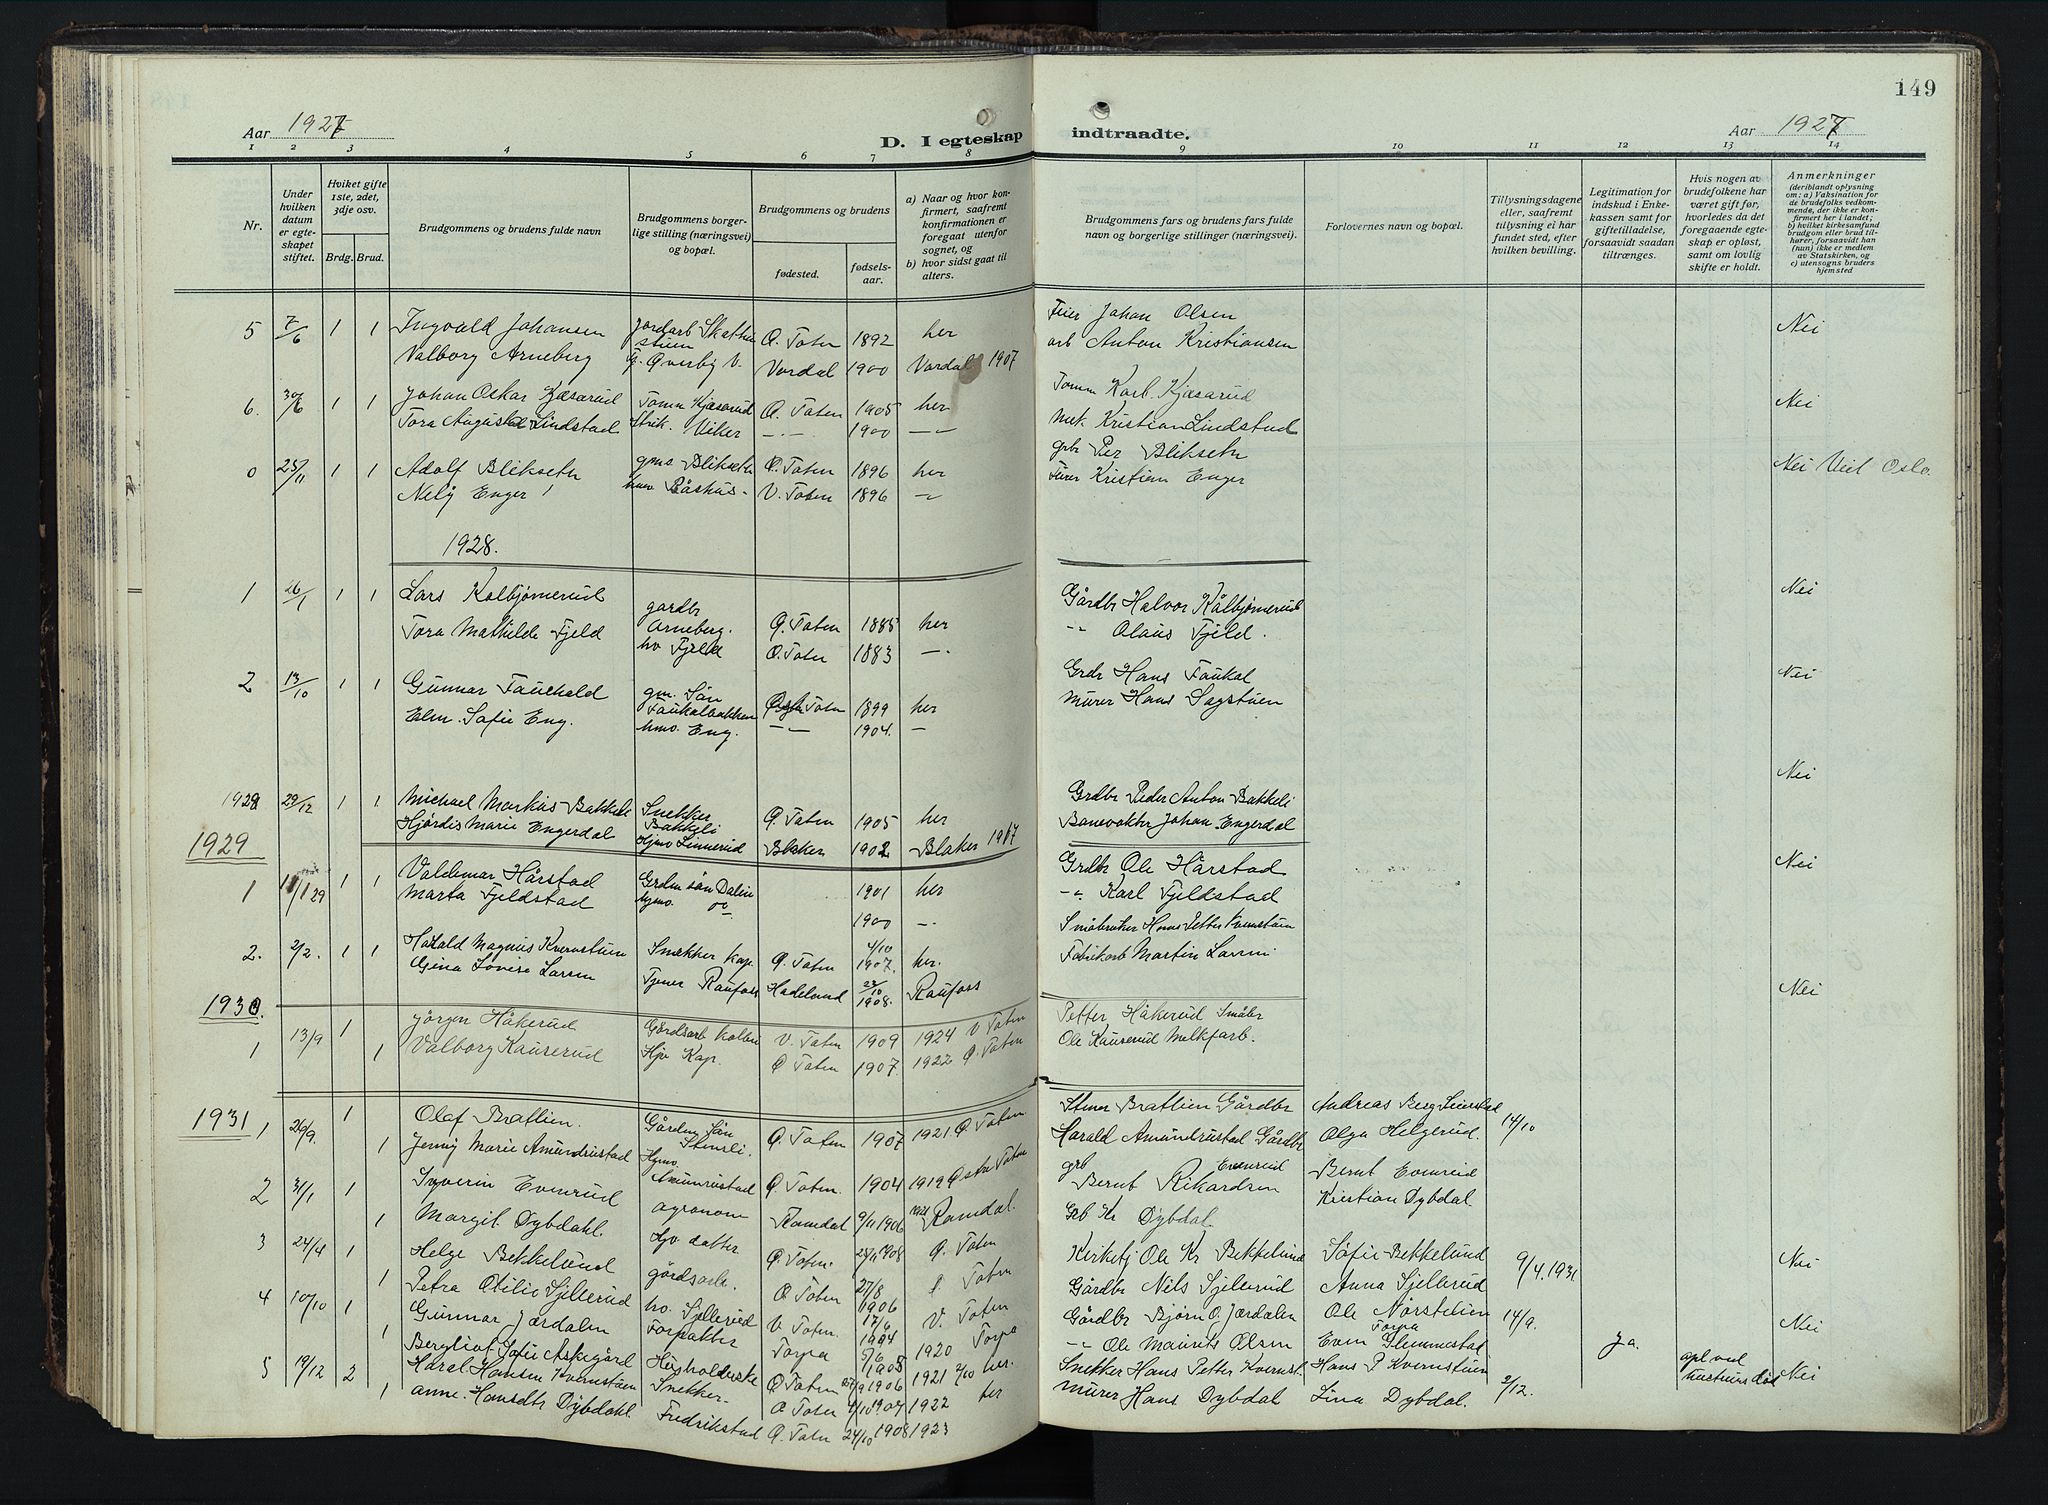 149
Aar 1927
D. I egteskap indtraadte.
Aar 1927
1 2 3 4 5 6 7 8 9 10 11 12 13 14
Nr.
Under hvilken datum er egteskapet stiftet.
Hviket gifte 1ste, 2det, 3dje osv.
Brdg. Brud.
Brudgommens og brudens fulde navn
Brudgommens borgerlige stilling (næringsvei) og bopæl.
Brudgommens og brudens
fødested. fødselsaar.
a) Naar og hvor konfirmert, saafremt konfirmationen er foregaat utenfor sognet, og
b) hvor sidst gaat til alters.
Brudgommens fars og brudens fars fulde navn og borgerlige stillinger (næringsvei).
Forlovernes navn og bopæl.
Tillysningsdagene eller, saafremt tillysning ei har fundet sted, efter hvilken bevilling.
Legitimation for indskud i Enkekassen samt for giftetilladelse, forsaavidt saadan tiltrænges.
Hvis nogen av brudefolkene har været gift før, hvorledes da det foregaaende egteskap er opløst, samt om lovlig skifte er holdt.
Anmerkninger (deriblandt oplysning om: a) Vaksination for de brudefolks vedkommende, der ikke er konfirmert her i landet; b) hvilket kirkesamfund brudgom eller brud tilhører, forsaavidt han (hun) ikke er medlem av Statskirken, og c) utensogns bruders hjemsted
5 7/6 1 1 Ingvald Johansen Jordarb Skattustuen Ø. Toten 1892 her Feier Johan Olsen Nei
Valborg Arneberg Øverby V. Vardal 1900 Vardal 1907 arb Anton Kristiansen
6. 30/6 1 1 Johan Oskar Kjæsarud Tomm Kjæsarud Ø. Toten 1905 her Tomm Karl Kjæsarud Nei
Tora Augusta Lindstad Strik. Viker -"- 1900 -"- Kristian Lindstad
0 25/11 1 1 Adolf Blikseth gms Blikseth Ø. Toten 1896 her gbr Per Blikseth Nei Viet Oslo
Nelly Enger hmv Råshus V. Toten 1896 -"- Kristian Enger
1928.
1 26/1 1 1 Lars Kolbjørnerud gardbr Arneberg. Ø. Toten 1885 her Gårdbr Halvor Kålbjørnerud Nei
Tora Mathilde Fjeld hv Fjeld Ø. Toten 1883 -"- -"- Olaus Fjeld.
2 13/10 1 1 Gunnar Fauchald gm. Søn Faukalbakken Toten 1899 her Grdr Hans Faukal Nei
Elen Sofie Eng. hmv. Eng. -"- 1904. - Murer Hans Sagstuen
1928 29/12 1 1 Michael Markus Bakkeli Snekker Bakkeli Ø. Toten 1905 her Grdbr Peder Anton Bakkeli Nei
Hjørdis Marie Engerdal Hjmv Linnerud Blaker 1902 Blaker 1917 Banevokter Johan Engerdal
1929
1 11/1 29 1 1 Valdemar Hårstad Grdm søn Dalen 1901 her Grdbr Ole Hårstad Nei
Marta Fjeldstad hjmv. 1900 -"- -"- Karl Fjeldstad
2. 2/2. 1 1 Harald Magnus Kvernstuen Snekker Kap Ø. Toten 4/10 1907. her. Småbruker Hans Petter Kvernstuen
Gina Lovise Larsen Tjener Raufoss Hadeland 22/10 1908. Raufoss Fabrikarb Martin Larsen Nei
1930.
1 13/9 1 Jørgen Håkerud Gårdsarb Kolbu V. Toten 1909 1924 V Toten Petter Håkerud Småbr
1 Valborg Kauserud Hjv Kap. Ø Toten 1907. 1922 Ø. Toten Ole Kauserud Melkfarb.
1931
1 26/9. 1 Olaf Brattlien. Gårdm Søn Stensli. Ø. Toten 1907 1921 Ø Toten Stener Brattlien Gårdbr Andreas Berg Seierstad 14/10
1 Jenny Marie Amundrustad Hjmv. Amunrustad Ø. Toten. 1904 1919 Østre Toten Harald Amundrustad Gårdbr Olga Helgerud.
2 31/1 1 Syverin Evenrud agronom grb Bernt Rikardsen Evenrud Bernt Evenrud
1 Margit Dybdahl. Hjv datter Ramdal 9/11 1906 1921 Ramdal. Grb Kr Dybdal Kristian Dybdal
3 24/4 1 Helge Bekkelund gårdsarb. Ø. Toten. 25/11 1908 Ø. Toten Kirketj Ole Kr Bekkelund Sofie Bekkelund 9/4.1931 Nei
1 Petra Otilie Sjellerud hv. Sjellerud Ø Toten 27/8 1906 Toten Gårdbr Nils Sjellerud Anna Sjellerud
4 10/10 1 Gunnar Jørdalen Forpakter V. Toten. 17/6 1904 V. Toten Gårdbr Bjørn O. Jørdalen Ole Nørstelien Torpa 14/9. Nei
1 Bergliot Sofie Askegård Husholderske Torpa 5/6 1905 1920 Torpa -"- Ole Maurits Olsen Even Glemmestad Ja.
5 19/12 2 Haral Hansen Kvernstuen Snekker Ø Toten 1906 1921 2/10 her. Snekker Hans Petter Kvernst. Hans P Kvernstuen 2/12. opl ved hustruens død Nei
1 anne Hansdtr Dybdahl. Fredrikstad Ø Toten 4/10 1907 1922 her Murer Hans Dybdal Lina Dybdal.
Ø. Toten 24/10 1908 1923